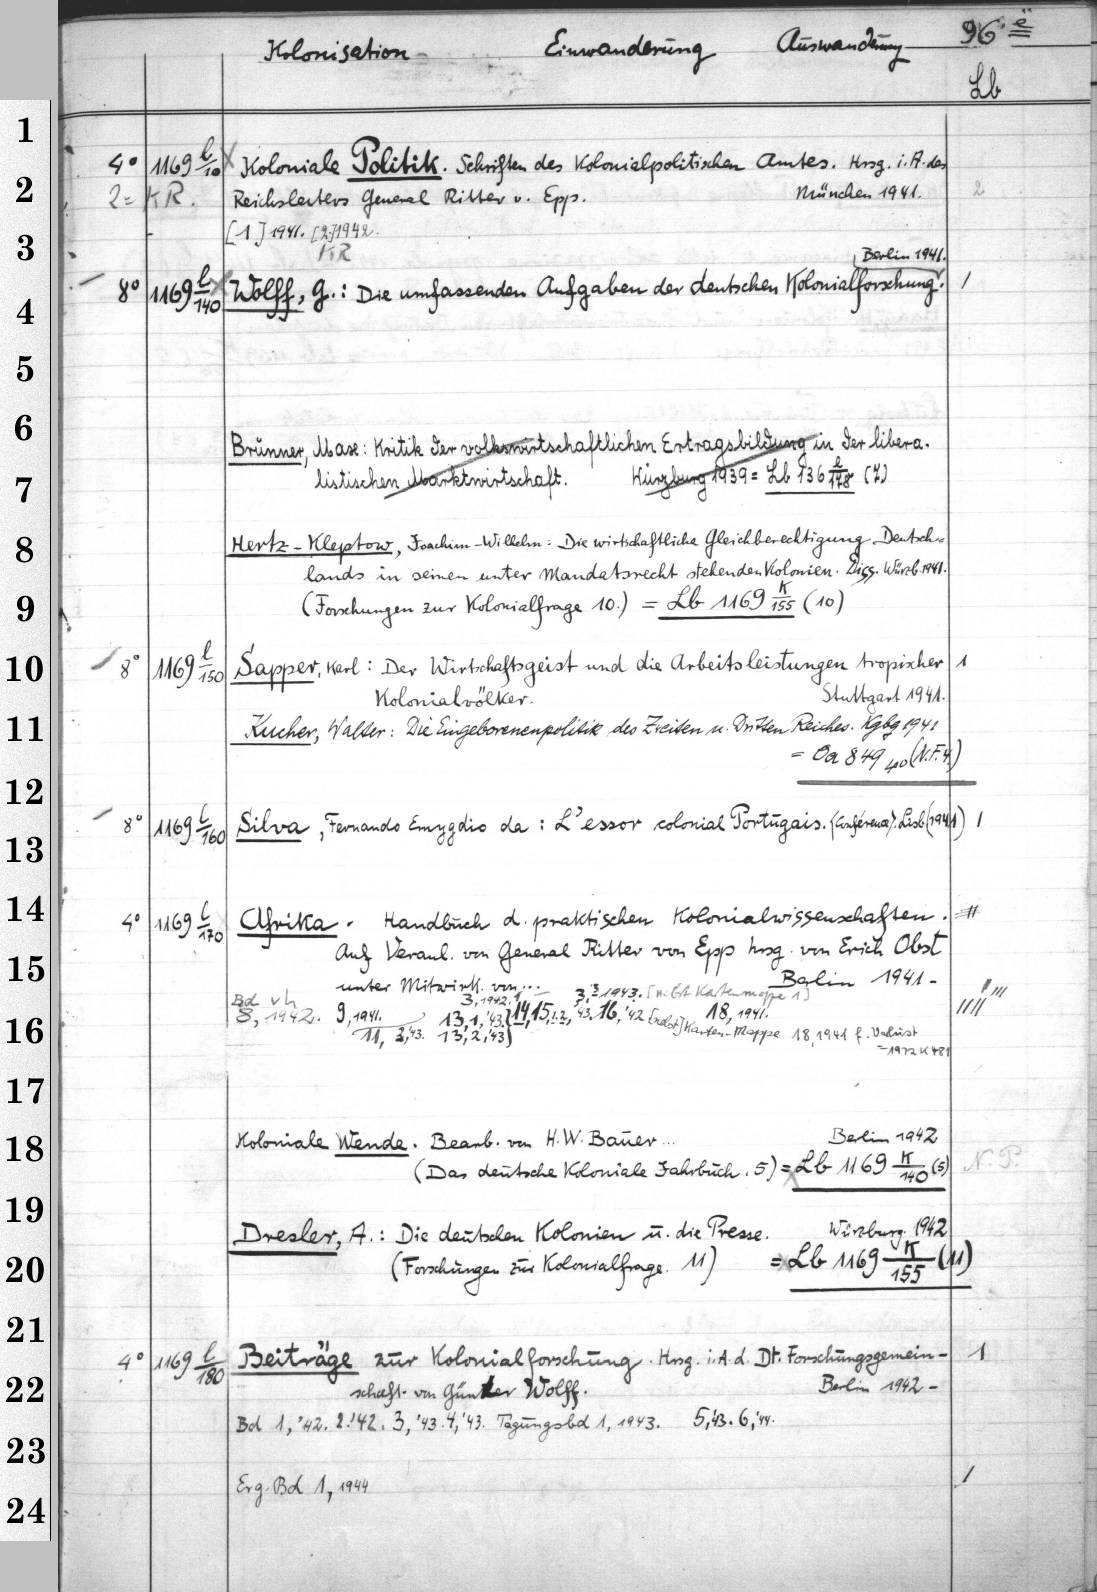 Kolonisation Einwanderung Auswanderung 96 ë
Lb
1
4° 1169 l/10 Koloniale Politik. Schriften des Kolonialpolitischen Amtes. Hrsg. i. A. des
2 2= KR. Reichsleiters General Ritter v. Epp. München 1941. 2
[1] 1941. [2.] 1942.
KR
3
Berlin 1941.
8° 1169 l/140 Wolff, G.: Die umfassenden Aufgaben der deutschen Kolonialforschung. 1
4
5
6
Brünner, Max: Kritik der volkswirtschaftlichen Ertragsbildung in der libera-
7 listischen Marktwirtschaft. Würzburg 1939 = Lb 136 l/178 (7)
8 Hertz-Kleptow, Joachim-Wilhelm: Die wirtschaftliche Gleichberechtigung Deutsch-
lands in seinen unter Mandatsrecht stehenden Kolonien. Diss. Würzb. 1941.
9 (Forschungen zur Kolonialfrage 10.) = Lb 1169 K/155 (10)
10 8° 1169 l/150 Sapper, Karl: Der Wirtschaftsgeist und die Arbeitsleistungen tropischer 1
Kolonialvölker. Stuttgart 1941.
11 Kucher, Walter: Die Eingeborenenpolitik des Zweiten u. Dritten Reiches. Kgbg 1941
= Oa 849 40 (N.F.4.)
12
8° 1169 l/160 Silva, Fernando Emygdio da: L'essor colonial Portugais. (Conférence). Lisb (1941) 1
13
14 4° 1169 l/170 Afrika. Handbuch d. praktischen Kolonialwissenschaften.
Auf Veranl. von General Ritter von Epp hrsg. von Erich Obst
15 unter Mitwirk. von... Berlin 1941-
3, 1942. 3,3 1943. Kartenmappe 1]
Bd
8, 1942. 9, 1941. 13,1,'43. 14, 15, 1.2, '43. 16, '42 Karten-Mappe 18, 1941.
16 11, 2,'43. 13,2,'43) 18, 1941 f. Verlust
= 1972 K 481
17
Koloniale Wende. Bearb. von H. W. Bauer... Berlin 1942
18 (Das deutsche Koloniale Jahrbuch. 5) = Lb 1169 K/140 (5) N. P.
19
Dresler, A.: Die deutschen Kolonien u. die Presse. Würzburg 1942
20 (Forschungen zur Kolonialfrage. 11) = Lb 1169 K/155 (11)
21
4° 1169 l/180 Beiträge zur Kolonialforschung. Hrsg. i. A. d. Dt. Forschungsgemein- 1
22 schaft von Günter Wolff. Berlin 1942-
Bd 1, '42. 2.'42. 3, '43. 4, '43. Tagungsbd 1, 1943. 5,'43. 6,'44.
23
Erg. Bd 1, 1944 1
24